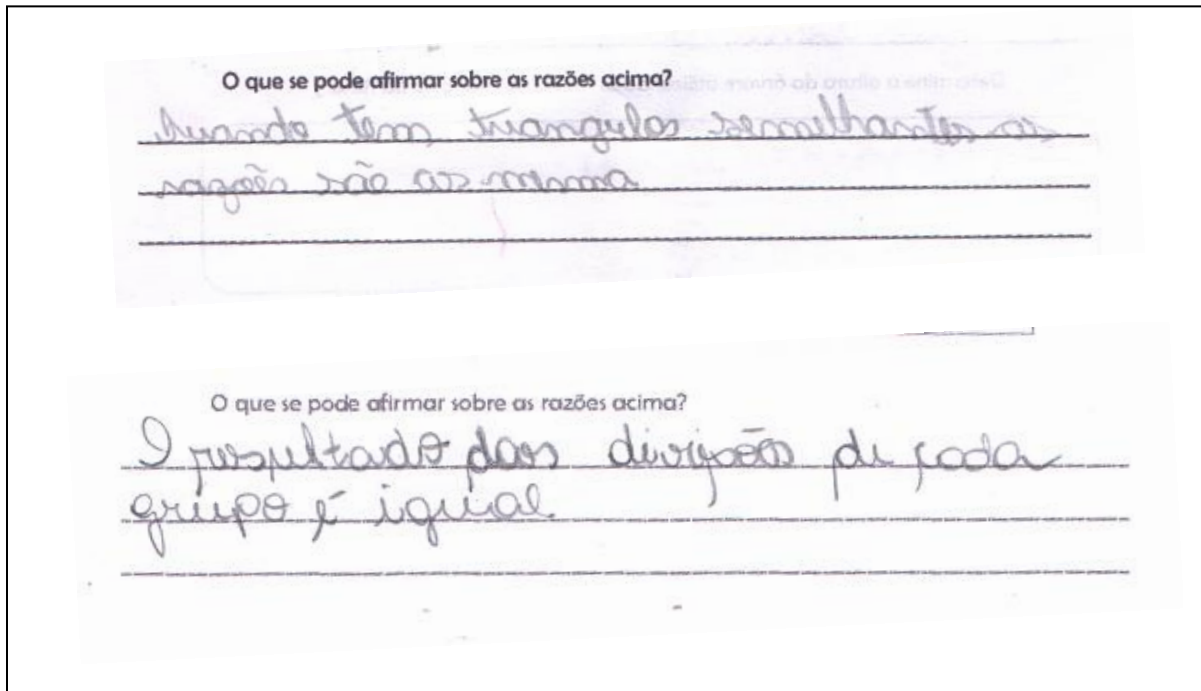 O que se pode afirmar sobre as razões acima?
Quando tem triangulos semelhantes as
razões são as mesma
O que se pode afirmar sobre as razões acima?
O resultado das divisões de cada
grupo é igual